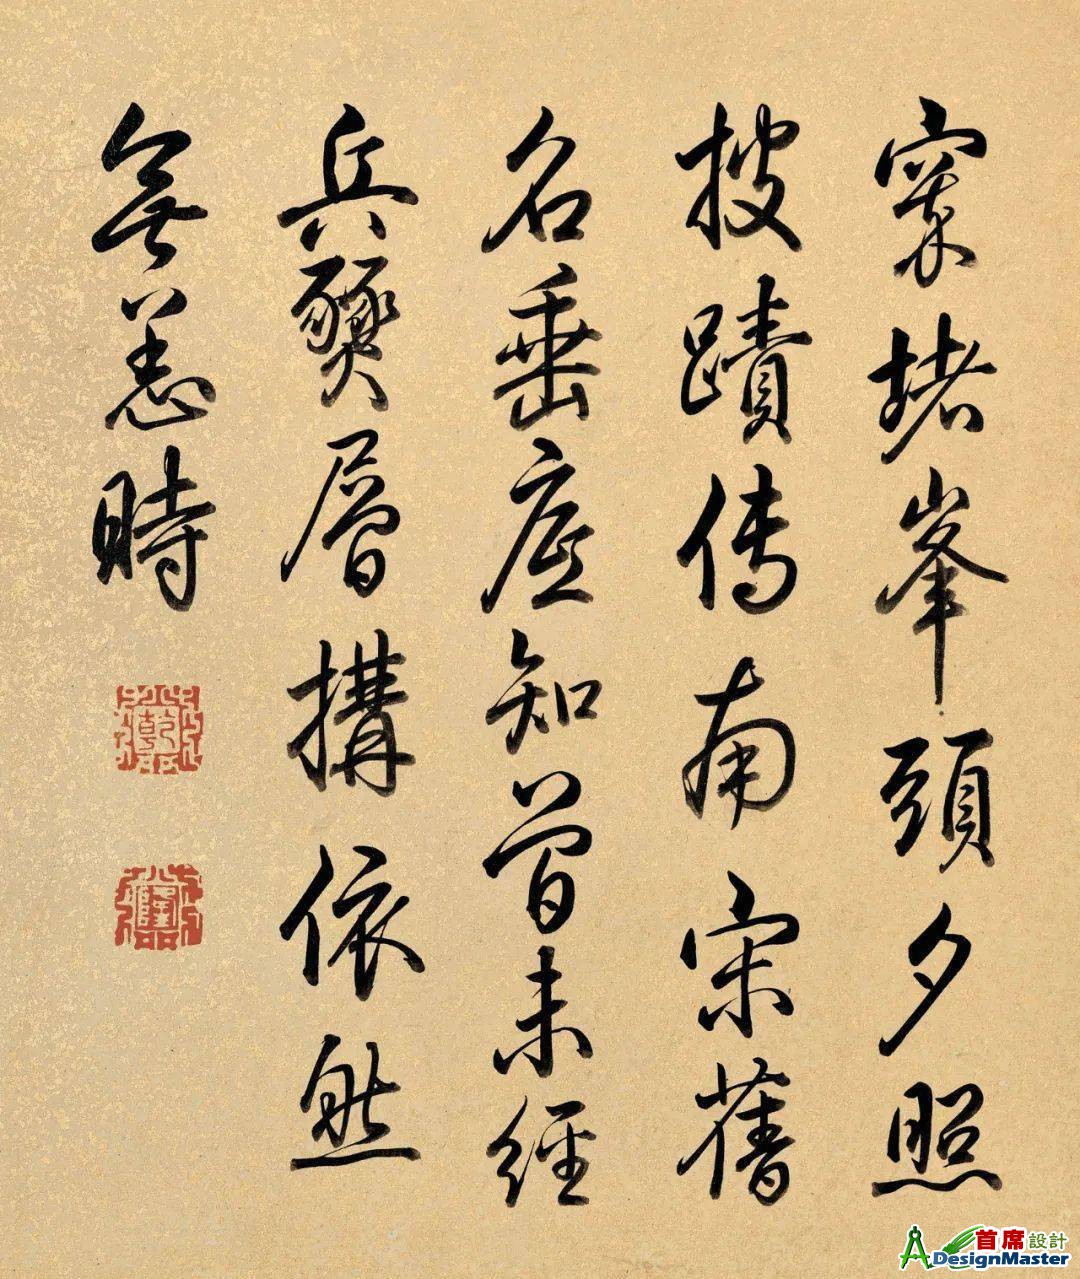 窣堵峯頭夕照
披蹟傳南宋舊
名垂應知曾未經
兵燹層搆依然
無恙時
乾
隆
首席設計
DesignMaster